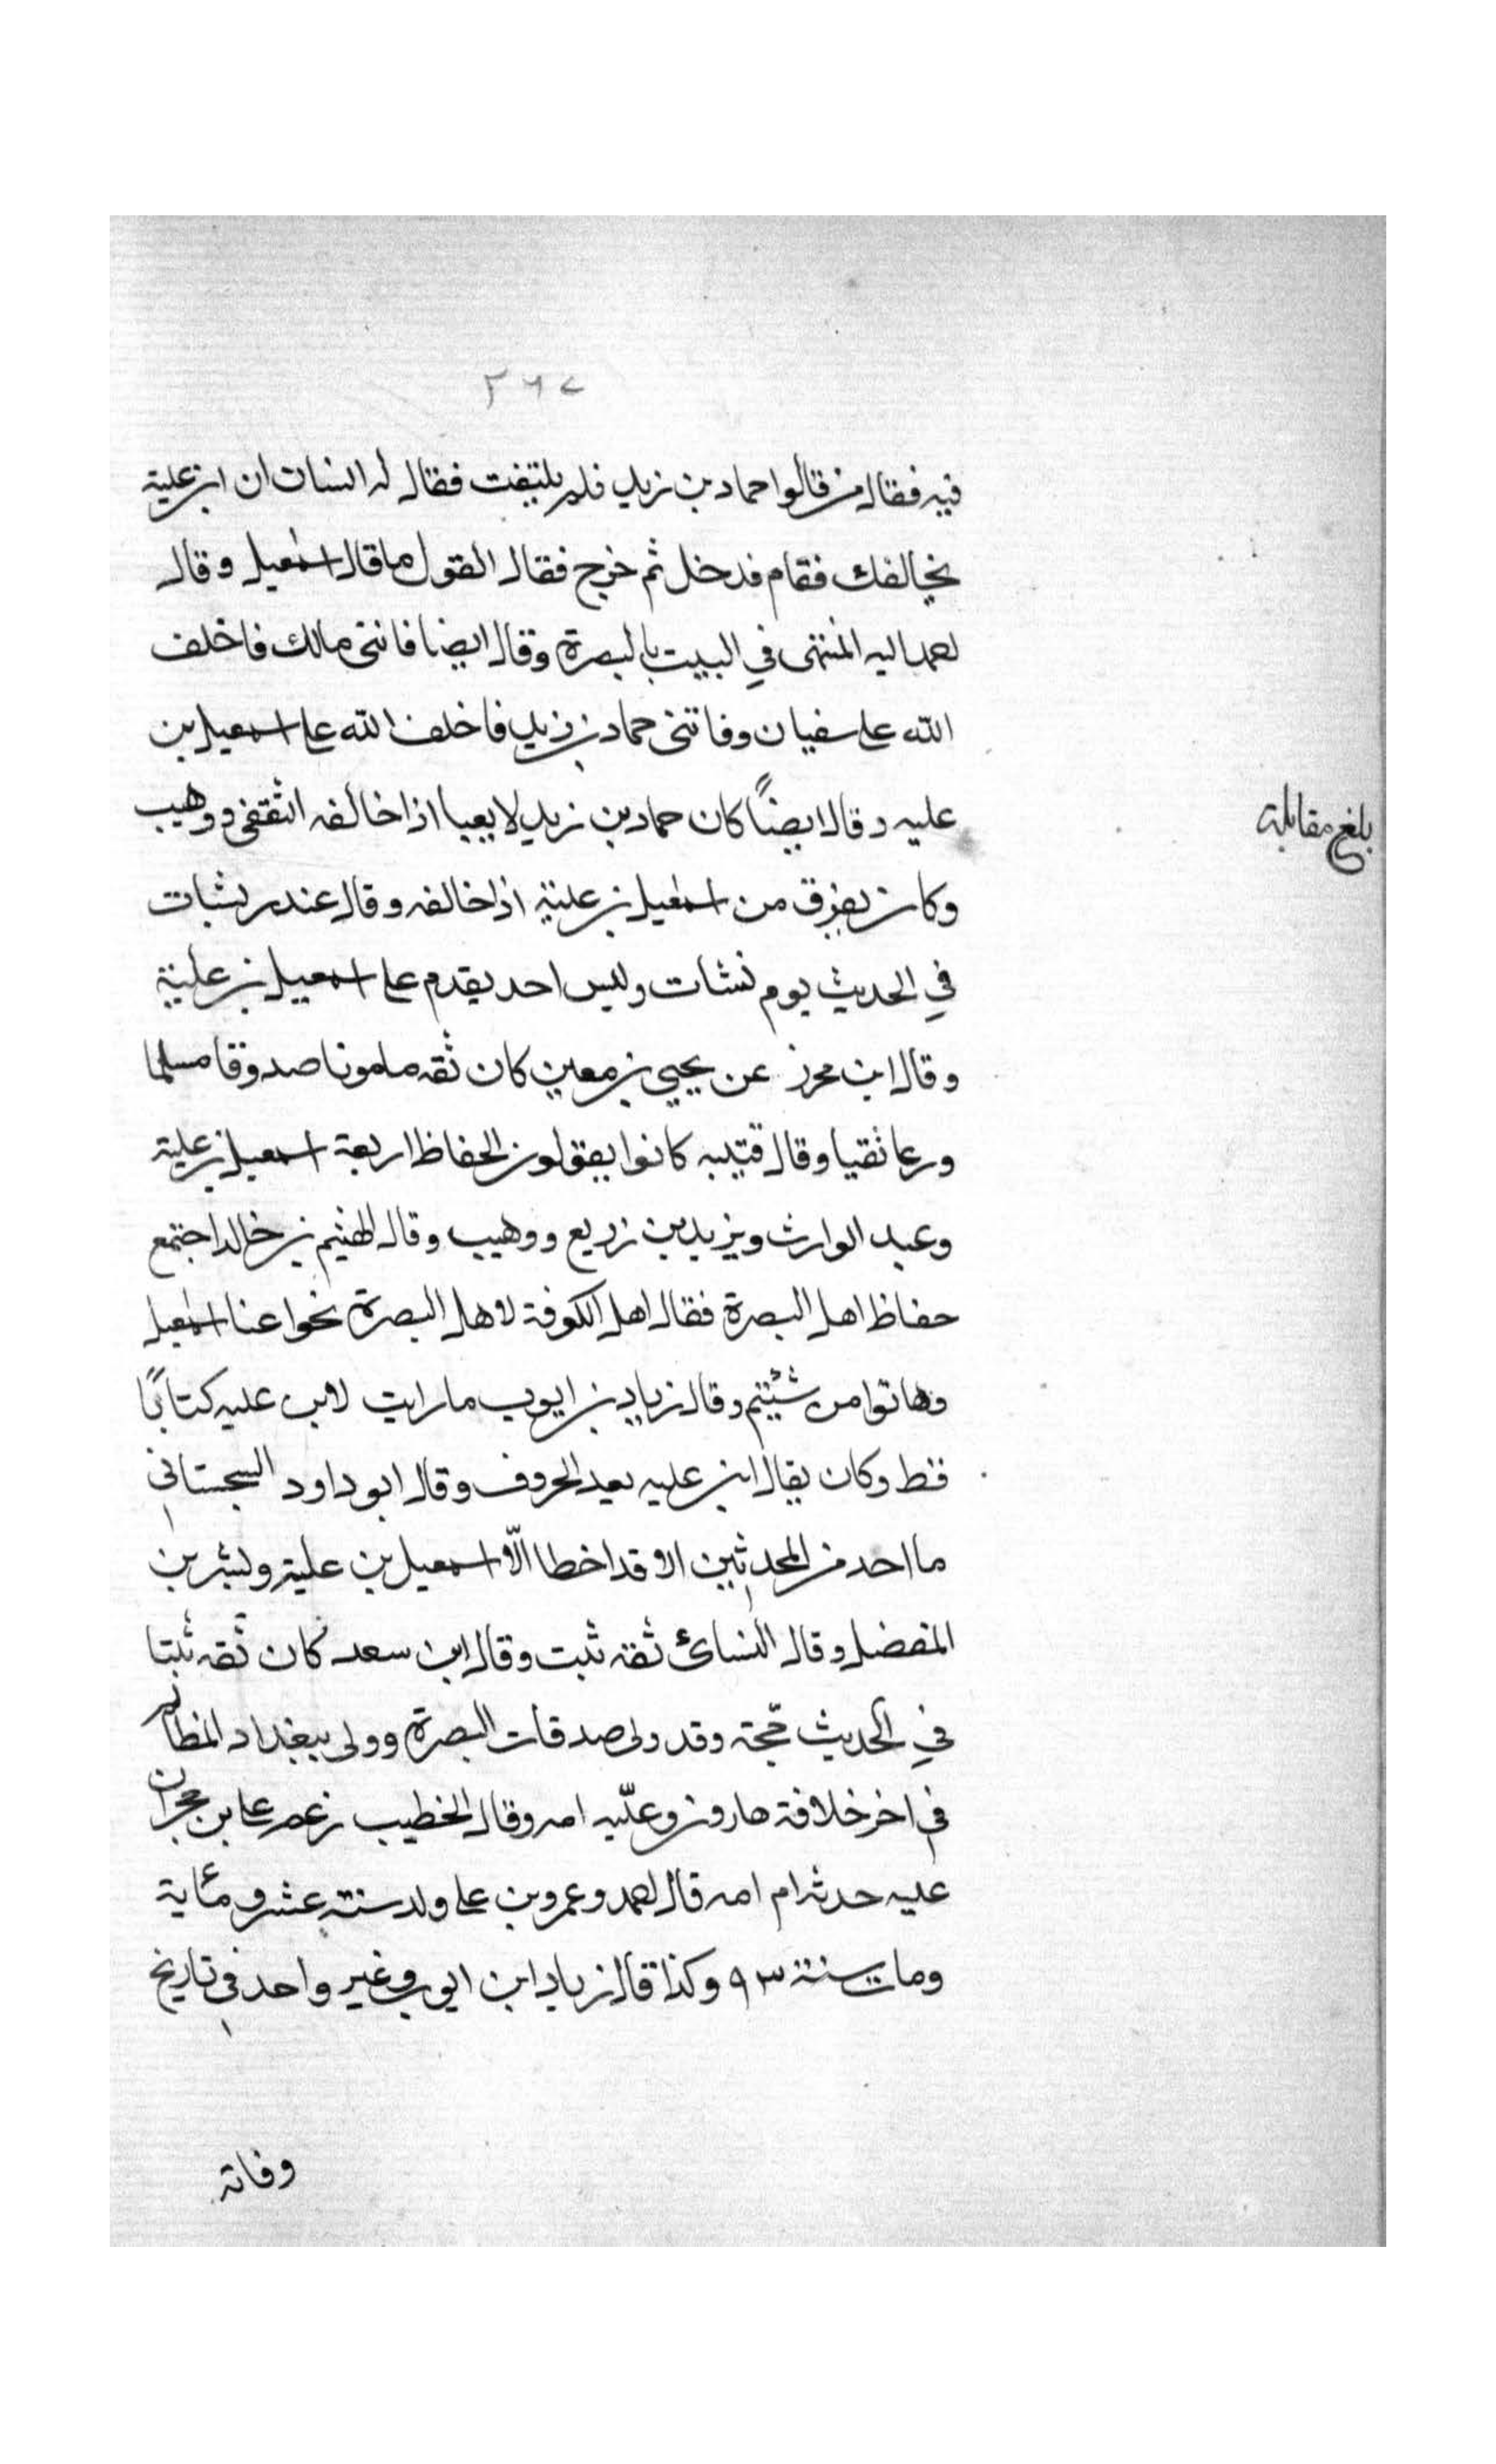 ٢٦٧
فيه فقال من قالوا حماد بن زيد فلم يلتفت فقال له انسان ان ابن علية
يخالفك فقام فدخل ثم خرج فقال القول ما قال اسمعيل وقال
احمد اليه المنتهى في البيت بالبصرة وقال ايضا فاتنى مالك فاخلف
الله على سفيان وفاتنى حماد بن زيد فاخلف الله على اسمعيل بن
عليه وقال ايضًا كان حماد بن زيد لا يعبا اذا خالفه الثقفى ووهيب
وكان يفرق من اسمعيل بن علية اذا خالفه وقال غندر نشات
في الحديث يوم نشات وليس احد يقدم على اسمعيل بن علية
وقال ابن محرز عن يحيى بن معين كان ثقه مامونا صدوقا مسلما
ورعا تقيا وقال قتيبه كانوا يقولون الحفاظ اربعة اسمعيل بن علية
وعبد الوارث ويزيد بن زريع ووهيب وقال الهيثم بن خالد اجتمع
حفاظ اهل البصرة فقال اهل الكوفة لاهل البصرة نحوا عنا اسمعيل
وهاتوا من شئتم وقال زياد بن ايوب ما رايت لابن عليه كتابًا
قط وكان يقال ابن عليه يعد الحروف وقال ابو داود السجستانى
ما احد من المحدثين الا قد اخطا الّا اسمعيل بن علية وبشر بن
المفضل وقال النسائ ثقة ثبت وقال ابن سعد كان ثقه ثبتا
في الحديث حجّة وقد ولى صدقات البصرة وولى ببغداد المظالم
في اخر خلافة هارون وعلّيه امه وقال الخطيب زعم على بن حجر ان
عليه جدته ام امه قال احمد وعمرو بن على ولد سنة عشر ومائة
ومات سنة ٩٣ وكذا قال زياد ابن ايوب وغير واحد في تاريخ
وفاته
بلغ مقابلة